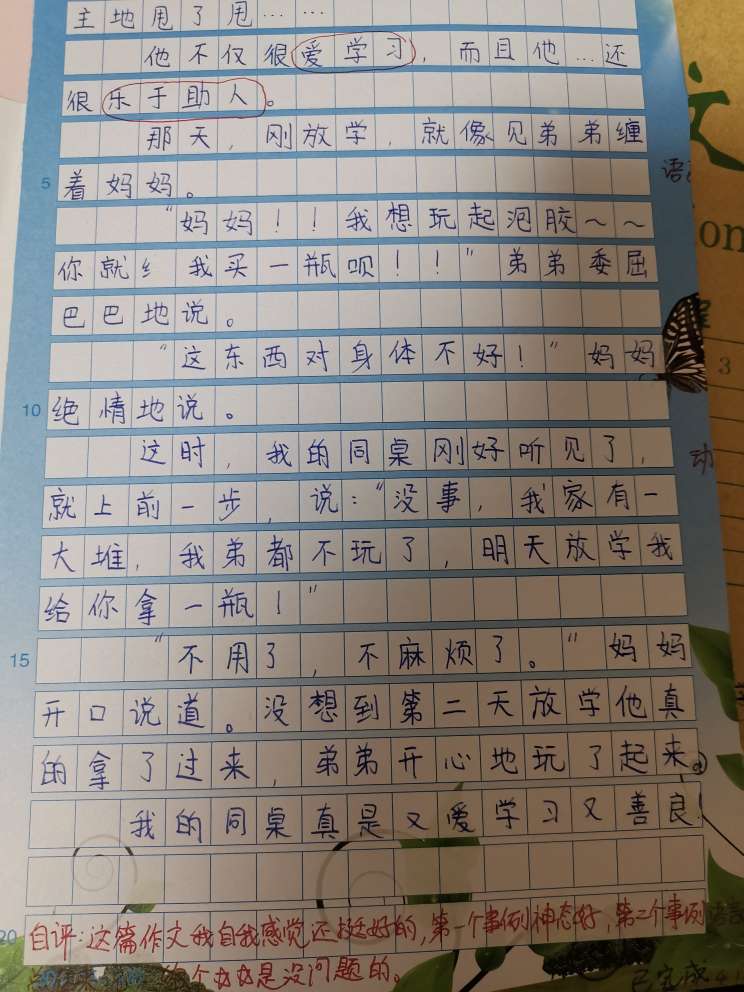 主地甩了甩……
他不仅很爱学习，而且他…还
很乐于助人。
那天，刚放学，就像见弟弟缠
着妈妈。
5
“妈妈！！我想玩起泡胶～～
你就 我买一瓶呗！！”弟弟委屈
巴巴地说。
“这东西对身体不好！”妈妈
绝情地说。
10
这时，我的同桌刚好听见了，
就上前一步，说：“没事，我家有一
大堆，我弟都不玩了，明天放学我
给你拿一瓶！”
“不用了，不麻烦了。”妈妈
15
开口说道。没想到第二天放学他真
的拿了过来，弟弟开心地玩了起来。
我的同桌真是又爱学习又善良！
自评：这篇作文我自我感觉还挺好的，第一个事例神态好，第二个事例
20
是没问题的。
已完成
文
ion
3
动